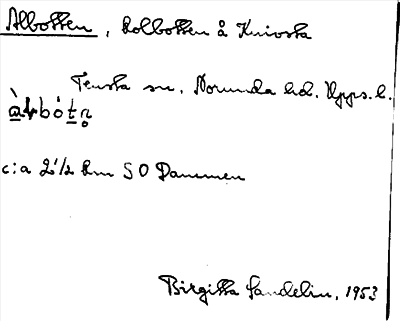 Albotten, kolbotten å Knivsta
Tensta sn, Norunda hd. Upps. l.
c:a 2 1/2 km SO Dammen
Birgitta Sandelin, 1953